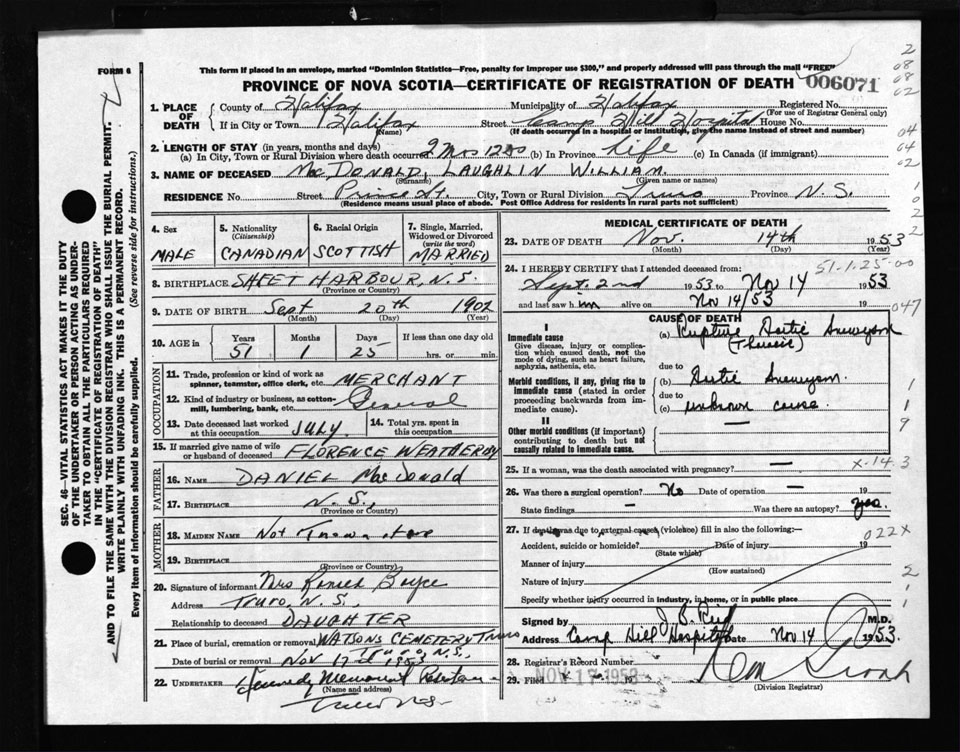 FORM 6
This form if placed in an envelope, marked "Dominion Statistics—Free, penalty for improper use $300," and properly addressed will pass through the mail "FREE"
PROVINCE OF NOVA SCOTIA—CERTIFICATE OF REGISTRATION OF DEATH
006071
1. PLACE OF DEATH
County of Halifax Municipality of Halifax Registered No.
(For use of Registrar General only)
If in City or Town Halifax Street Camp Hill Hospital House No.
(Name) (If death occurred in a hospital or institution, give the name instead of street and number)
2. LENGTH OF STAY (in years, months and days)
(a) In City, Town or Rural Division where death occurred 2 mos 12 ds (b) In Province Life (c) In Canada (if immigrant)
3. NAME OF DECEASED MacDONALD, LAUGHLIN WILLIAM.
(Surname) (Given name or names)
RESIDENCE No. Street Prince St. City, Town or Rural Division Truro Province N.S.
(Residence means usual place of abode. Post Office Address for residents in rural parts not sufficient)
4. Sex
MALE
5. Nationality
(Citizenship)
CANADIAN
6. Racial Origin
SCOTTISH
7. Single, Married, Widowed or Divorced
(write the word)
MARRIED
8. BIRTHPLACE SHEET HARBOUR, N.S.
(Province or Country)
9. DATE OF BIRTH Sept 20th 1902
(Month) (Day) (Year)
10. AGE in
Years Months Days If less than one day old
51 1 25 hrs. or min.
OCCUPATION
11. Trade, profession or kind of work as spinner, teamster, office clerk, etc. MERCHANT
12. Kind of industry or business, as cotton-mill, lumbering, bank, etc. General
13. Date deceased last worked at this occupation JULY
14. Total yrs. spent in this occupation
15. If married give name of wife or husband of deceased FLORENCE WEATHERBY
FATHER
16. NAME DANIEL MacDonald
17. BIRTHPLACE N.S.
(Province or Country)
MOTHER
18. MAIDEN NAME Not Known
19. BIRTHPLACE
(Province or Country)
20. Signature of informant Mrs Boyce
Address Truro, N.S.
Relationship to deceased DAUGHTER
21. Place of burial, cremation or removal WATSONS CEMETERY TRURO
Truro, N.S.
Date of burial or removal Nov 17 1953
22. UNDERTAKER Kennedy Memorial
(Name and address)
Truro N.S.
MEDICAL CERTIFICATE OF DEATH
23. DATE OF DEATH Nov. 14th 1953
(Month) (Day)
24. I HEREBY CERTIFY that I attended deceased from:
51-1-25-00
Sept. 2nd 1953 to Nov 14 1953
and last saw him alive on Nov 14/53 19
CAUSE OF DEATH
I
Immediate cause
Give disease, injury or complication which caused death, not the mode of dying, such as heart failure, asphyxia, asthenia, etc.
(a) Rupture Aortic Aneurysm
(Thoracic)
due to
Morbid conditions, if any, giving rise to immediate cause (stated in order proceeding backwards from immediate cause).
(b) Aortic Aneurysm
due to
(c) unknown cause.
II
Other morbid conditions (if important) contributing to death but not causally related to immediate cause.
—
25. If a woman, was the death associated with pregnancy? —
26. Was there a surgical operation? No Date of operation — 19
State findings — Was there an autopsy? yes.
27. If death was due to external causes (violence) fill in also the following:—
Accident, suicide or homicide? Date of injury 19
(State which)
Manner of injury
(How sustained)
Nature of injury
Specify whether injury occurred in industry, in home, or in public place
Signed by J B Reid M.D.
Address Camp Hill Hospital Date Nov 14 1953.
28. Registrar's Record Number
29. Filed NOV 17 1953
(Division Registrar)
SEC. 46—VITAL STATISTICS ACT MAKES IT THE DUTY
OF THE UNDERTAKER OR PERSON ACTING AS UNDER-
TAKER TO OBTAIN ALL THE PARTICULARS REQUIRED
IN THE "CERTIFICATE OF REGISTRATION OF DEATH"
AND TO FILE THE SAME WITH THE DIVISION REGISTRAR WHO SHALL ISSUE THE BURIAL PERMIT.
WRITE PLAINLY WITH UNFADING INK. THIS IS A PERMANENT RECORD.
Every item of information should be carefully supplied. (See reverse side for instructions.)
2
08
08
02
04
04
02
1
0
2
2
047
1
1
9
X-14.3
022X
2
1
1